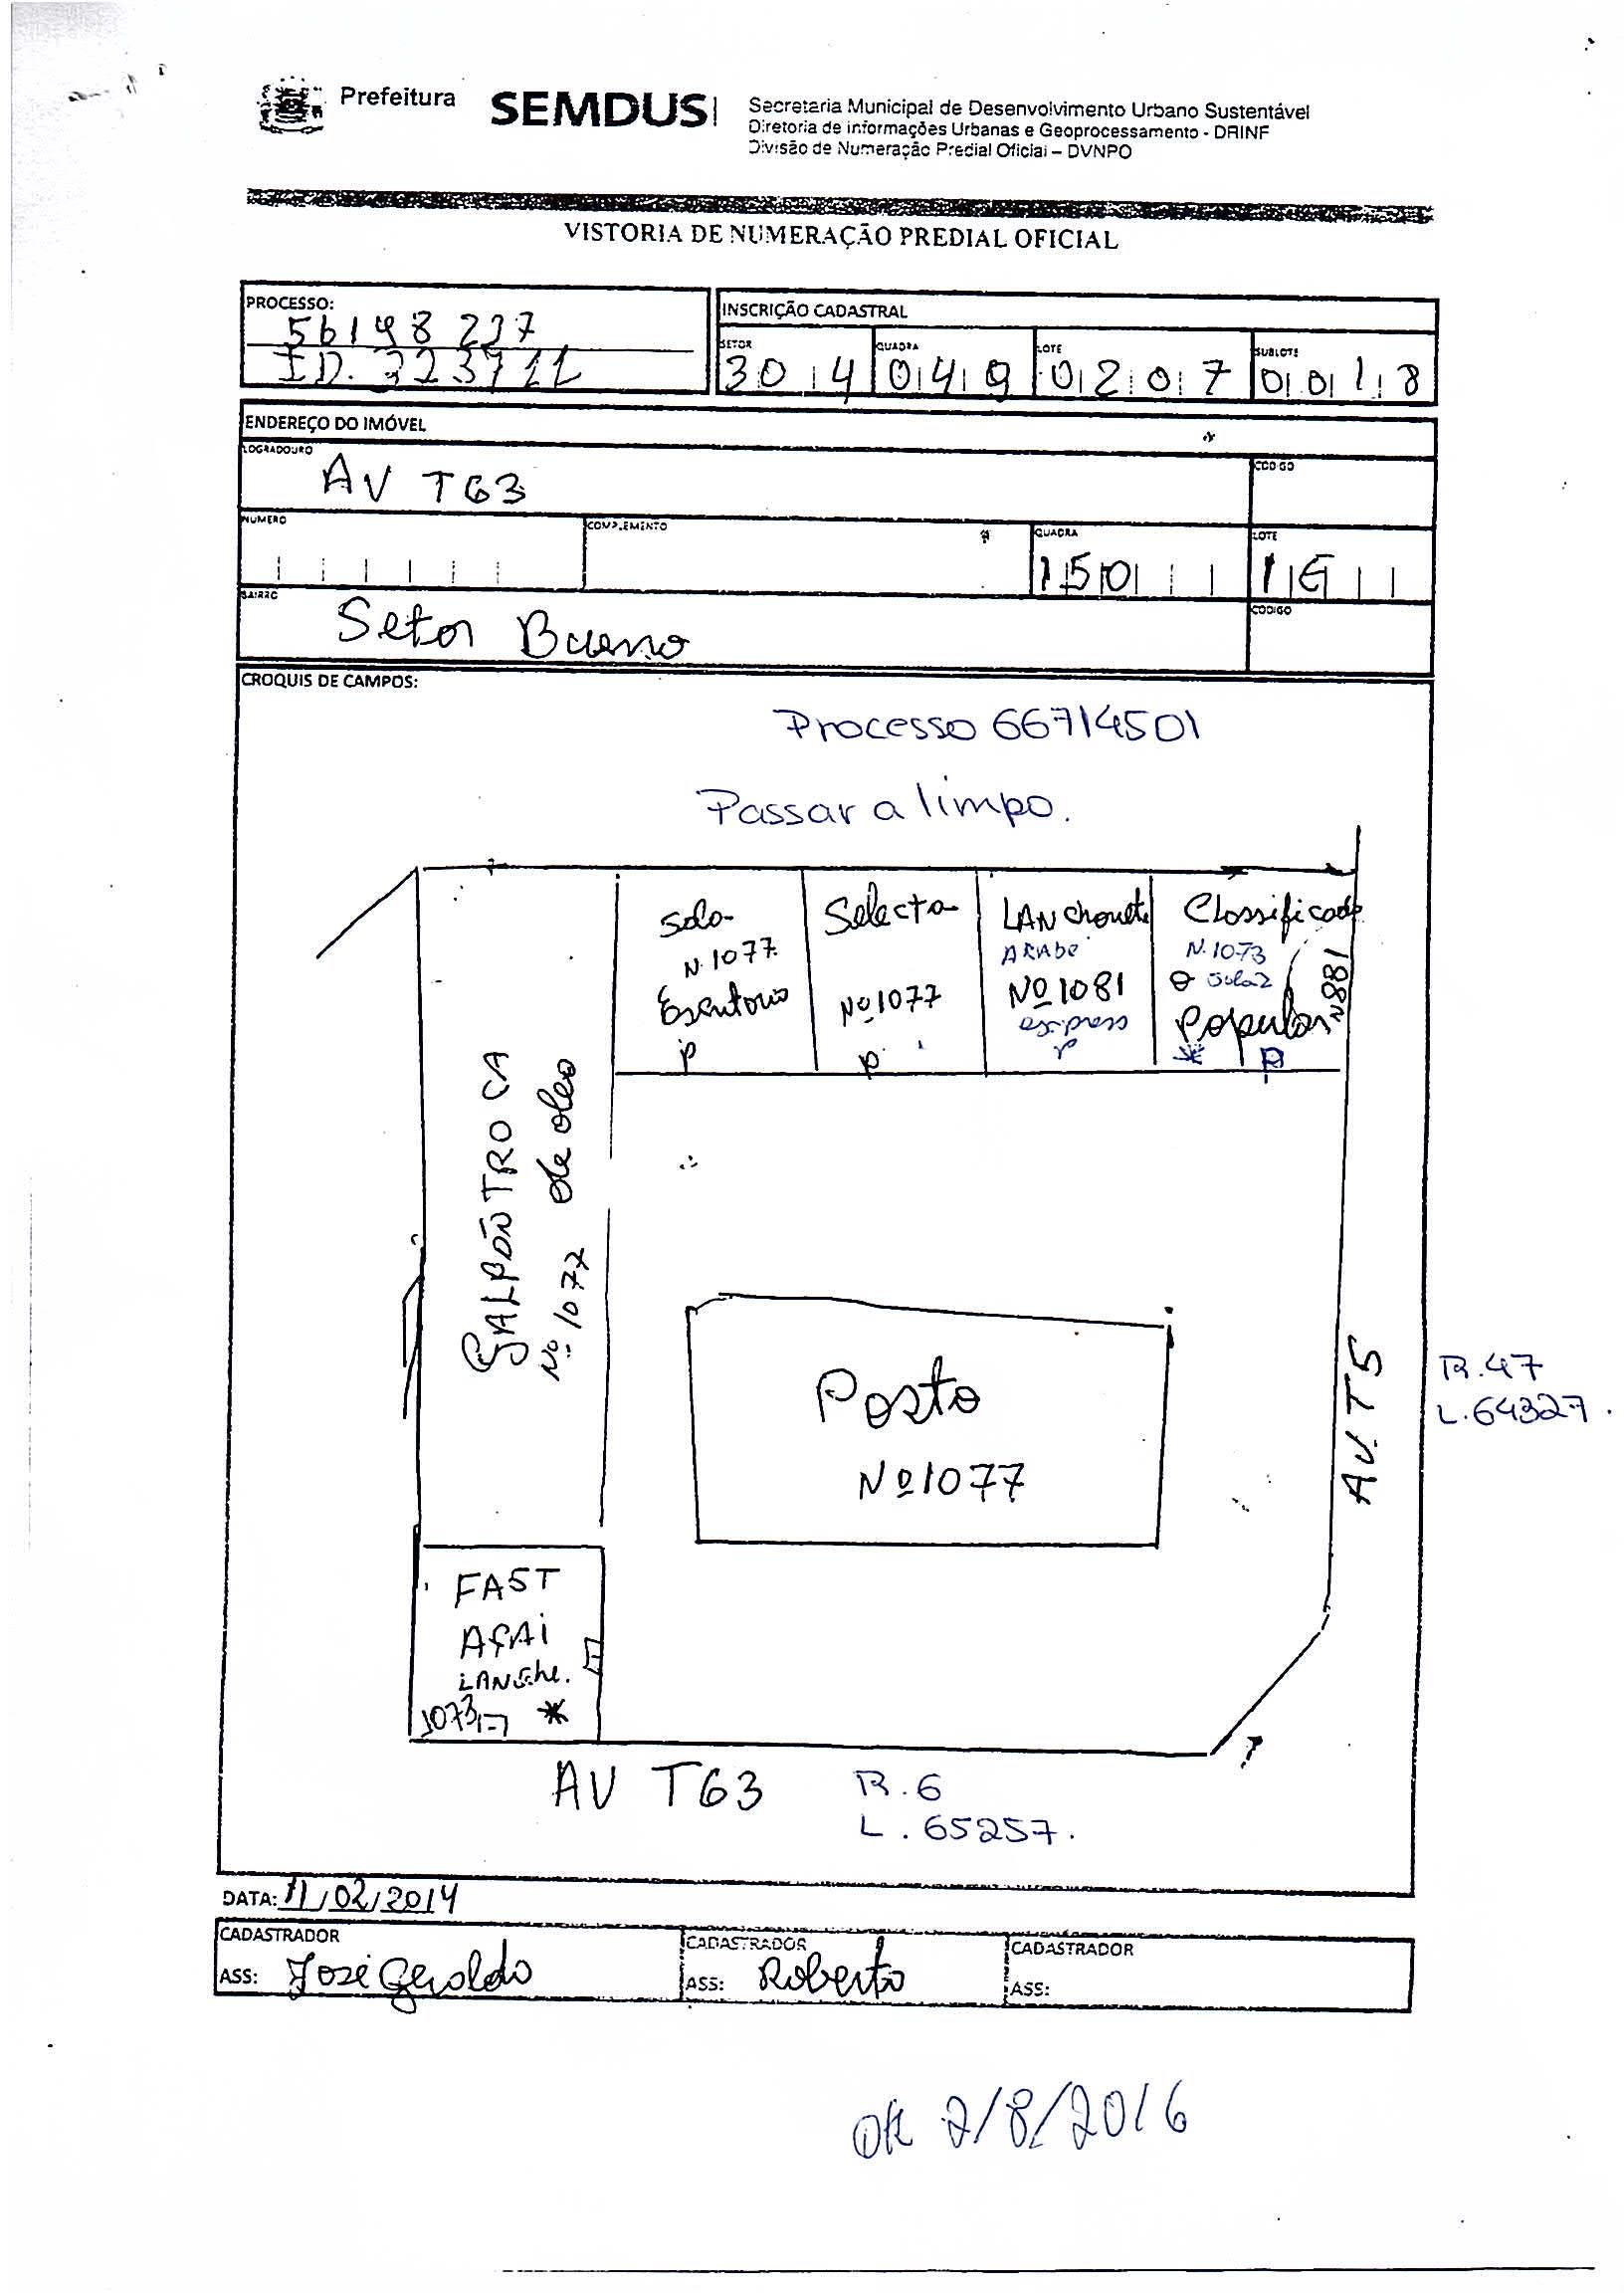 Prefeitura
SEMDUS
Secretaria Municipal de Desenvolvimento Urbano Sustentável
Diretoria de informações Urbanas e Geoprocessamento - DRINF
Divisão de Numeração Predial Oficial – DVNPO
VISTORIA DE NUMERAÇÃO PREDIAL OFICIAL
PROCESSO:
56198237
ID.
INSCRIÇÃO CADASTRAL
SETOR QUADRA LOTE SUBLOTE
304 049 0207 0018
ENDEREÇO DO IMÓVEL
LOGRADOURO CODIGO
AV T63
NUMERO COMPLEMENTO QUADRA LOTE
150
BAIRRO CODIGO
Setor Bueno
CROQUIS DE CAMPOS:
Processo 66714501
Passar a limpo.
Sala
N. 1077
Escritorio
P
Selecta
Nº 1077
P
LANchonete
ARAbe
Nº 1081
express
P
Classificado
N. 1073
Sala 2
Popular
* P
N881
GALPÃO TROCA
de oleo
Nº 1077
Posto
Nº 1077
AV. T5
R.47
L.64327.
FAST
AÇAI
LANche.
1073 *
AV T63
R.6
L.65257.
DATA: 11/02/2014
CADASTRADOR
ASS: José Geraldo
CADASTRADOR
ASS: Roberto
CADASTRADOR
ASS:
OK 2/8/2016